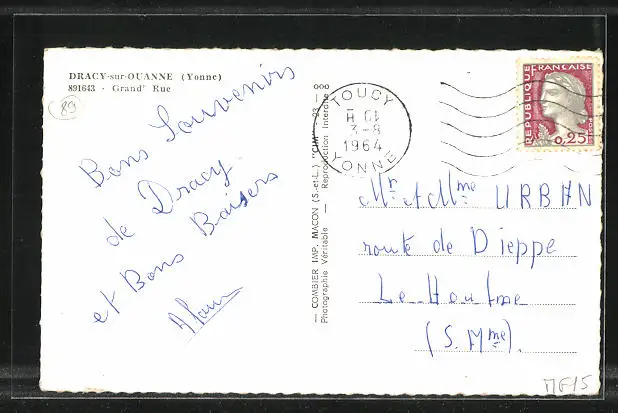 DRACY-sur-OUANNE (Yonne)
891643 - Grand' Rue
89
Bons Souvenirs
de Dracy
et Bons Baisers
Alain
— COMBIER IMP. MACON (S.-et-L.) "CIM"
Photographie Véritable — Reproduction Interdite
TOUCY
3-8
1964
YONNE
REPUBLIQUE FRANCAISE
0,25
POSTES
Mr & Mme URBAN
route de Dieppe
Le Houlme
(S. Mme).